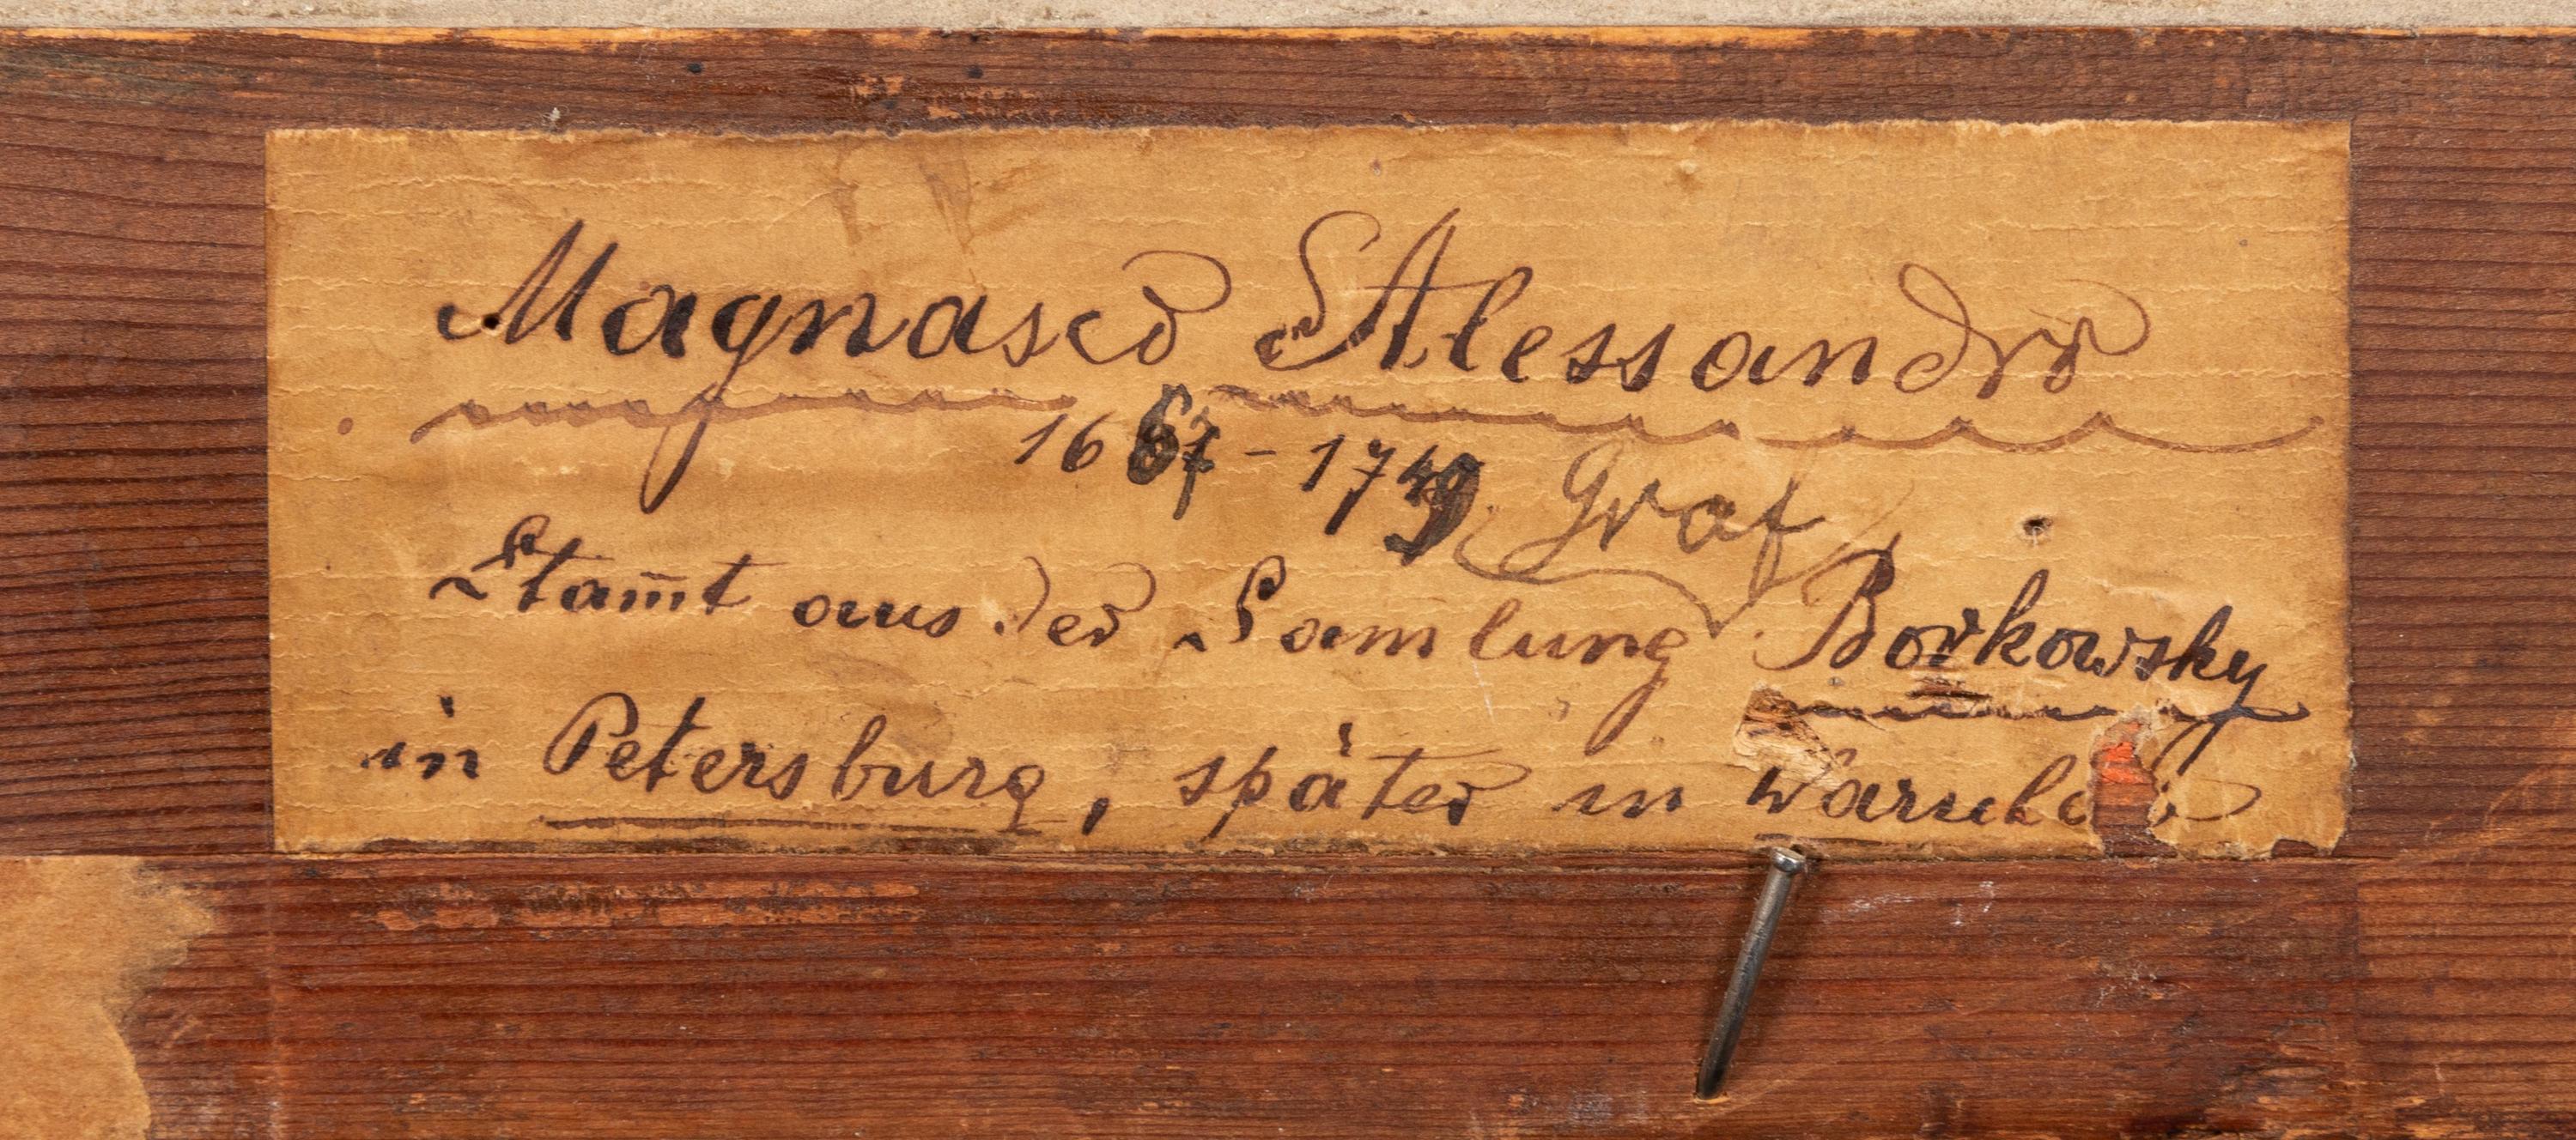 Magnasco Alessandro
1667 - 1749. Graf
Stam̄t aus der Samlung Borkowsky
in Petersburg, später in